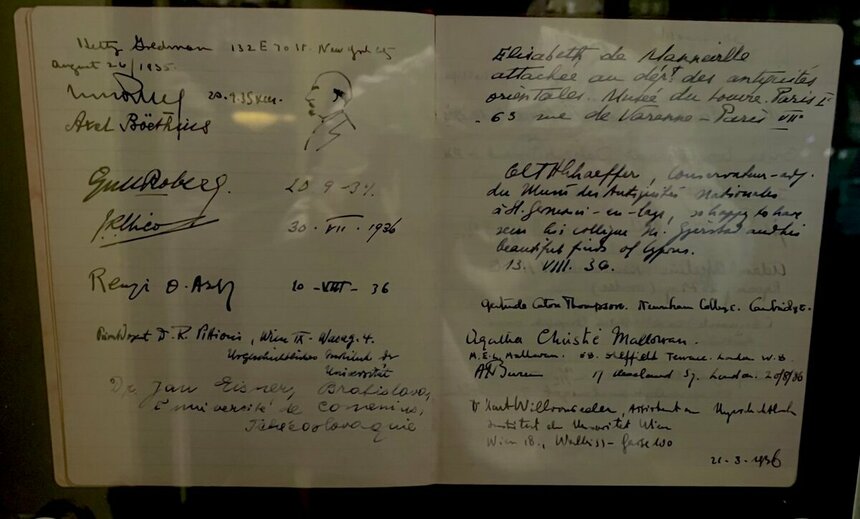 Hetty Goldman 132 E 70 St. New York City
August 26/1935.
20.9.35
Axel Boëthius
20-9-3
30. VII. 1936
10-VIII-36
D. R. Pittioni, Wien IX. Wasag. 4.
Urgeschichtliches Institut der
Universität
Dr. Jan Eisner, Bratislava,
Université de Comenius,
Tchécoslovaquie
Elisabeth de Manneville
attachée au dépt. des antiquités
orientales. Musée du Louvre. Paris Ier
63 rue de Varenne - Paris VIIe
Schaeffer, conservateur-adj.
du Musée des Antiquités Nationales
à St. Germain-en-Laye, so happy to have
seen his collègue Mr. Gjerstad and his
beautiful finds of Cyprus.
13. VIII. 36.
Gertrude Caton Thompson. Newnham College. Cambridge.
Agatha Christie Mallowan.
M.E.L. Mallowan. 58. Sheffield Terrace. London W.8
Sq. London. 20/8/36
Dr Kurt Willvonseder, Assistent am Urgeschichtlichen
Institut der Universität Wien
Wien 18., Gasse 100
21-3-1936